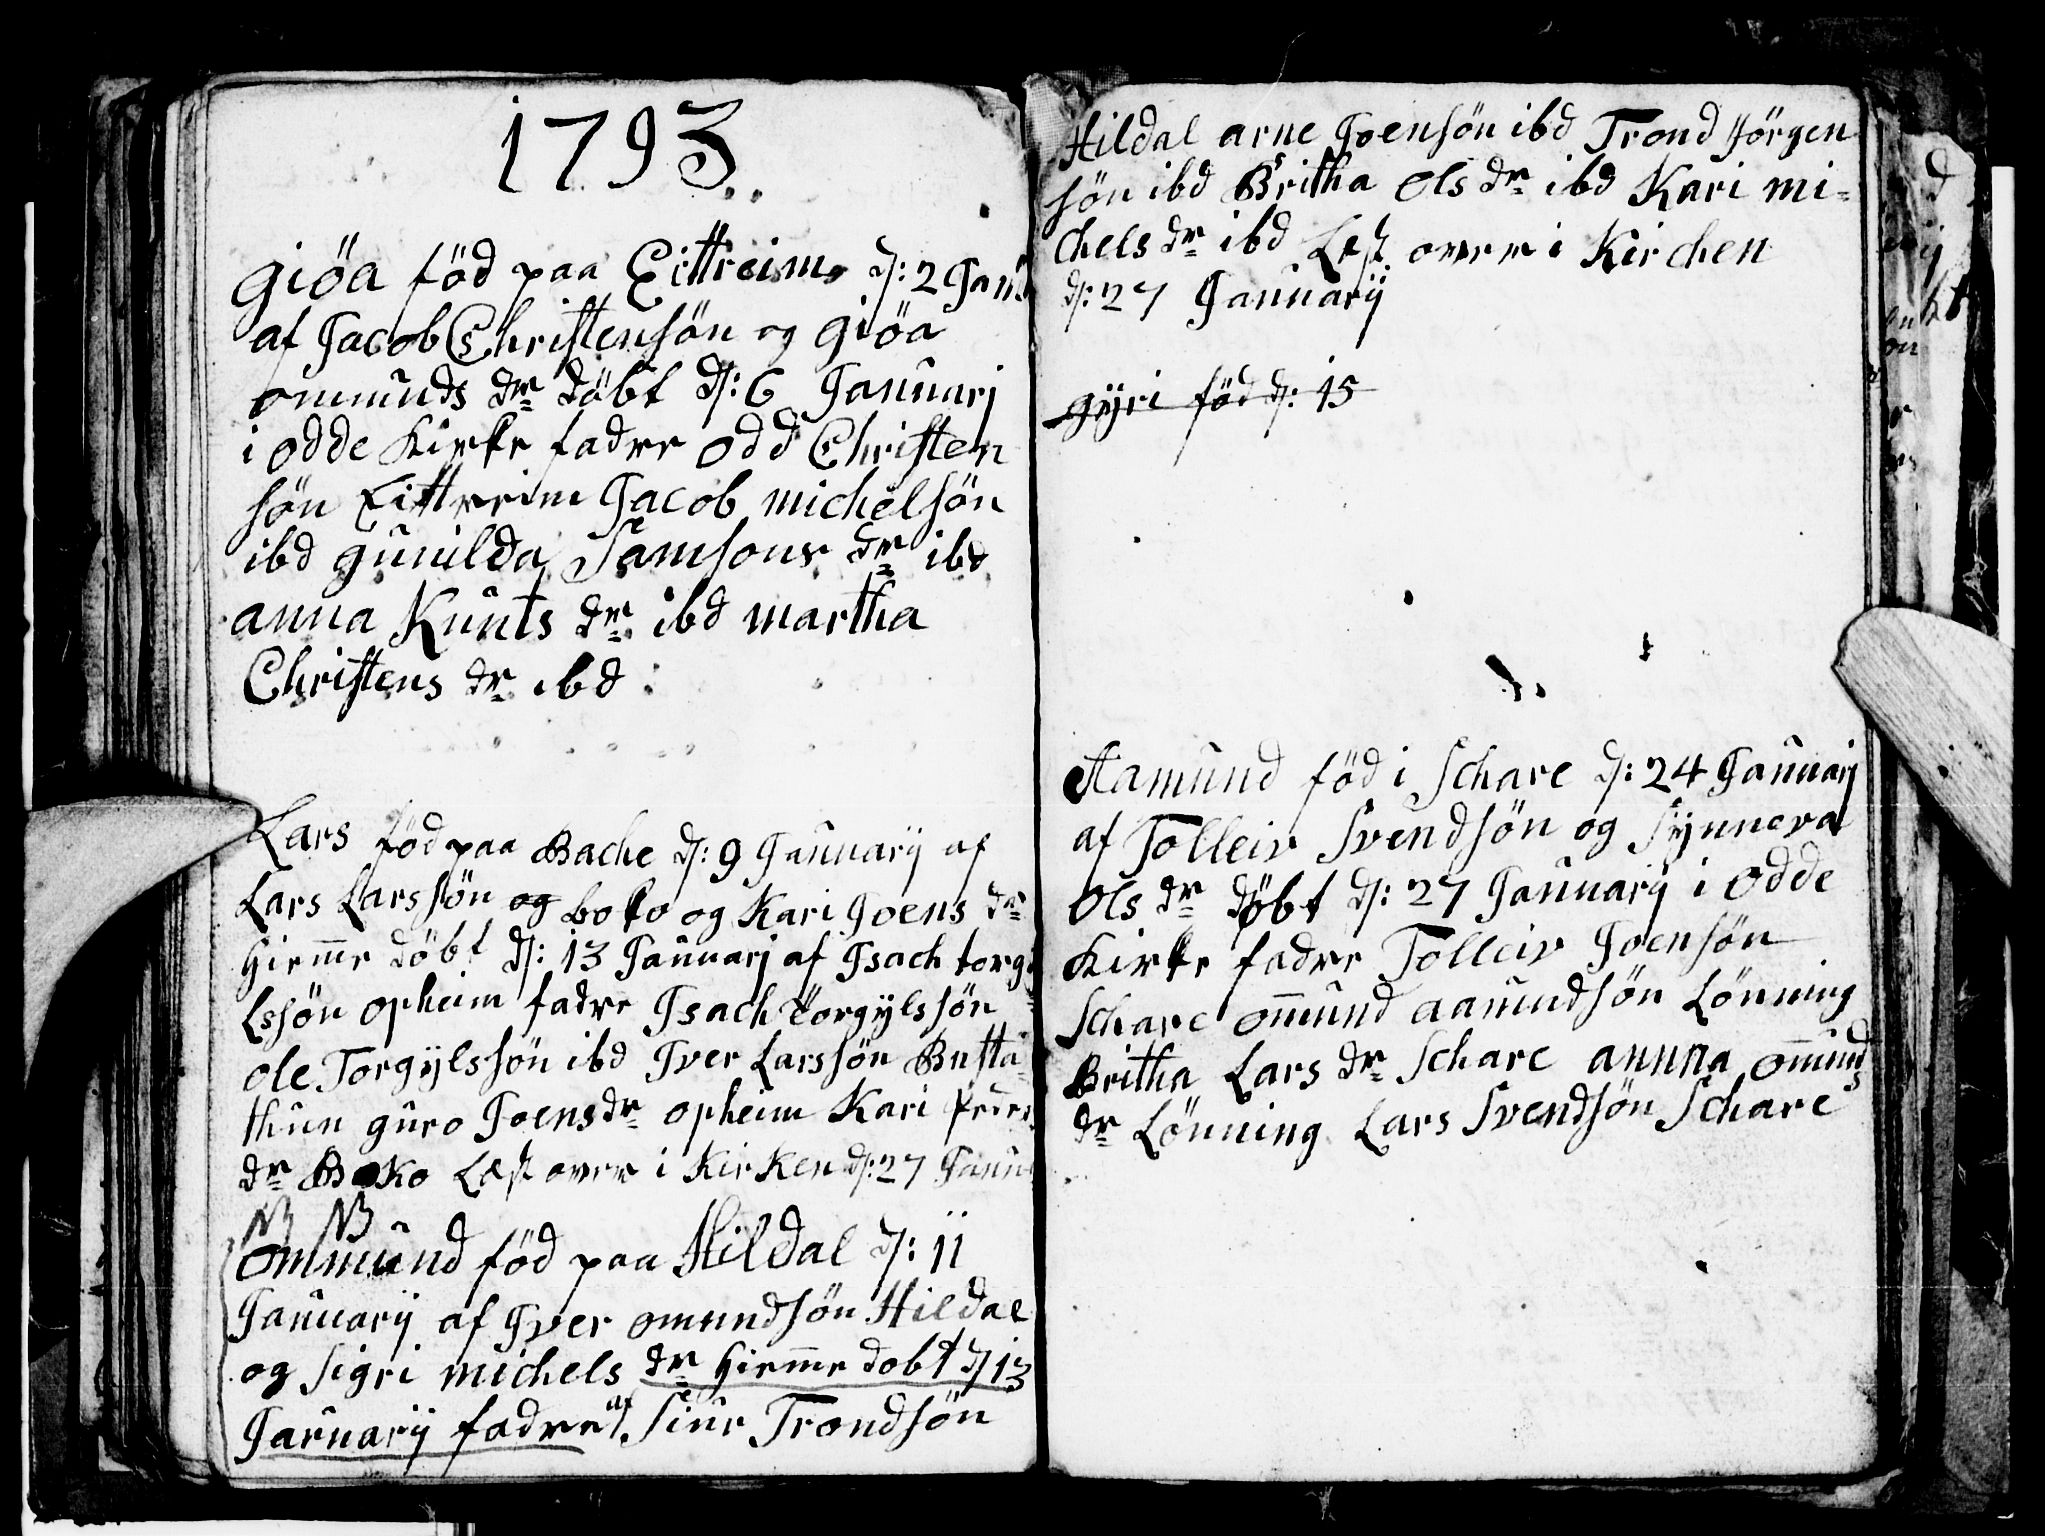 1793
giöa föd paa Eittreim d: 2 Janu
af Jacob Christensön og giöa
ommunds dr döbt d: 6 Januarj
i odde Kirke fadre odd Christen
sön Eittreim Jacob michelsön
ibd gunilda Samsons dr ibd
anna Kunts dr ibd martha
Christens dr ibd
Lars föd paa Bache d: 9 Januarij af
Lars Larssön og boko og Kari Joens dr
hieme döbt d: 13 Januarj af Jsach torgi
Lssön opheim fadre Jsach torgÿlssön
ole Torgÿlssön ibd Jver Larssön Busta
thun guro Joensdr opheim Kari Peders
dr Boko Læst over i Kirken d: 27 Janu
NB NB
ommund föd paa Hildal d: 11
Januarij af Jver omundsön Hildal
og sigri michels dr hieme dobt d 13
Januarij fadre af Siur Trondsön
Hildal arne Joensön ibd Trond Jörgen
sön ibd Britha Ols dr ibd Kari mi=
chels dr ibd Læst over i Kirchen
d: 27 Januarij
gÿri föd d: 15
Aamund föd i Schare d: 24 Januarj
af Tolleiv Svendsön og Sÿnneva
Ols dr döbt d: 27 Januarij i odde
Kirke fadre Tolleiv Joensön
Schare omund aamundsön Lönning
Britha Lars dr Schare annna omunds
dr Lönning Lars Svendsön Schare